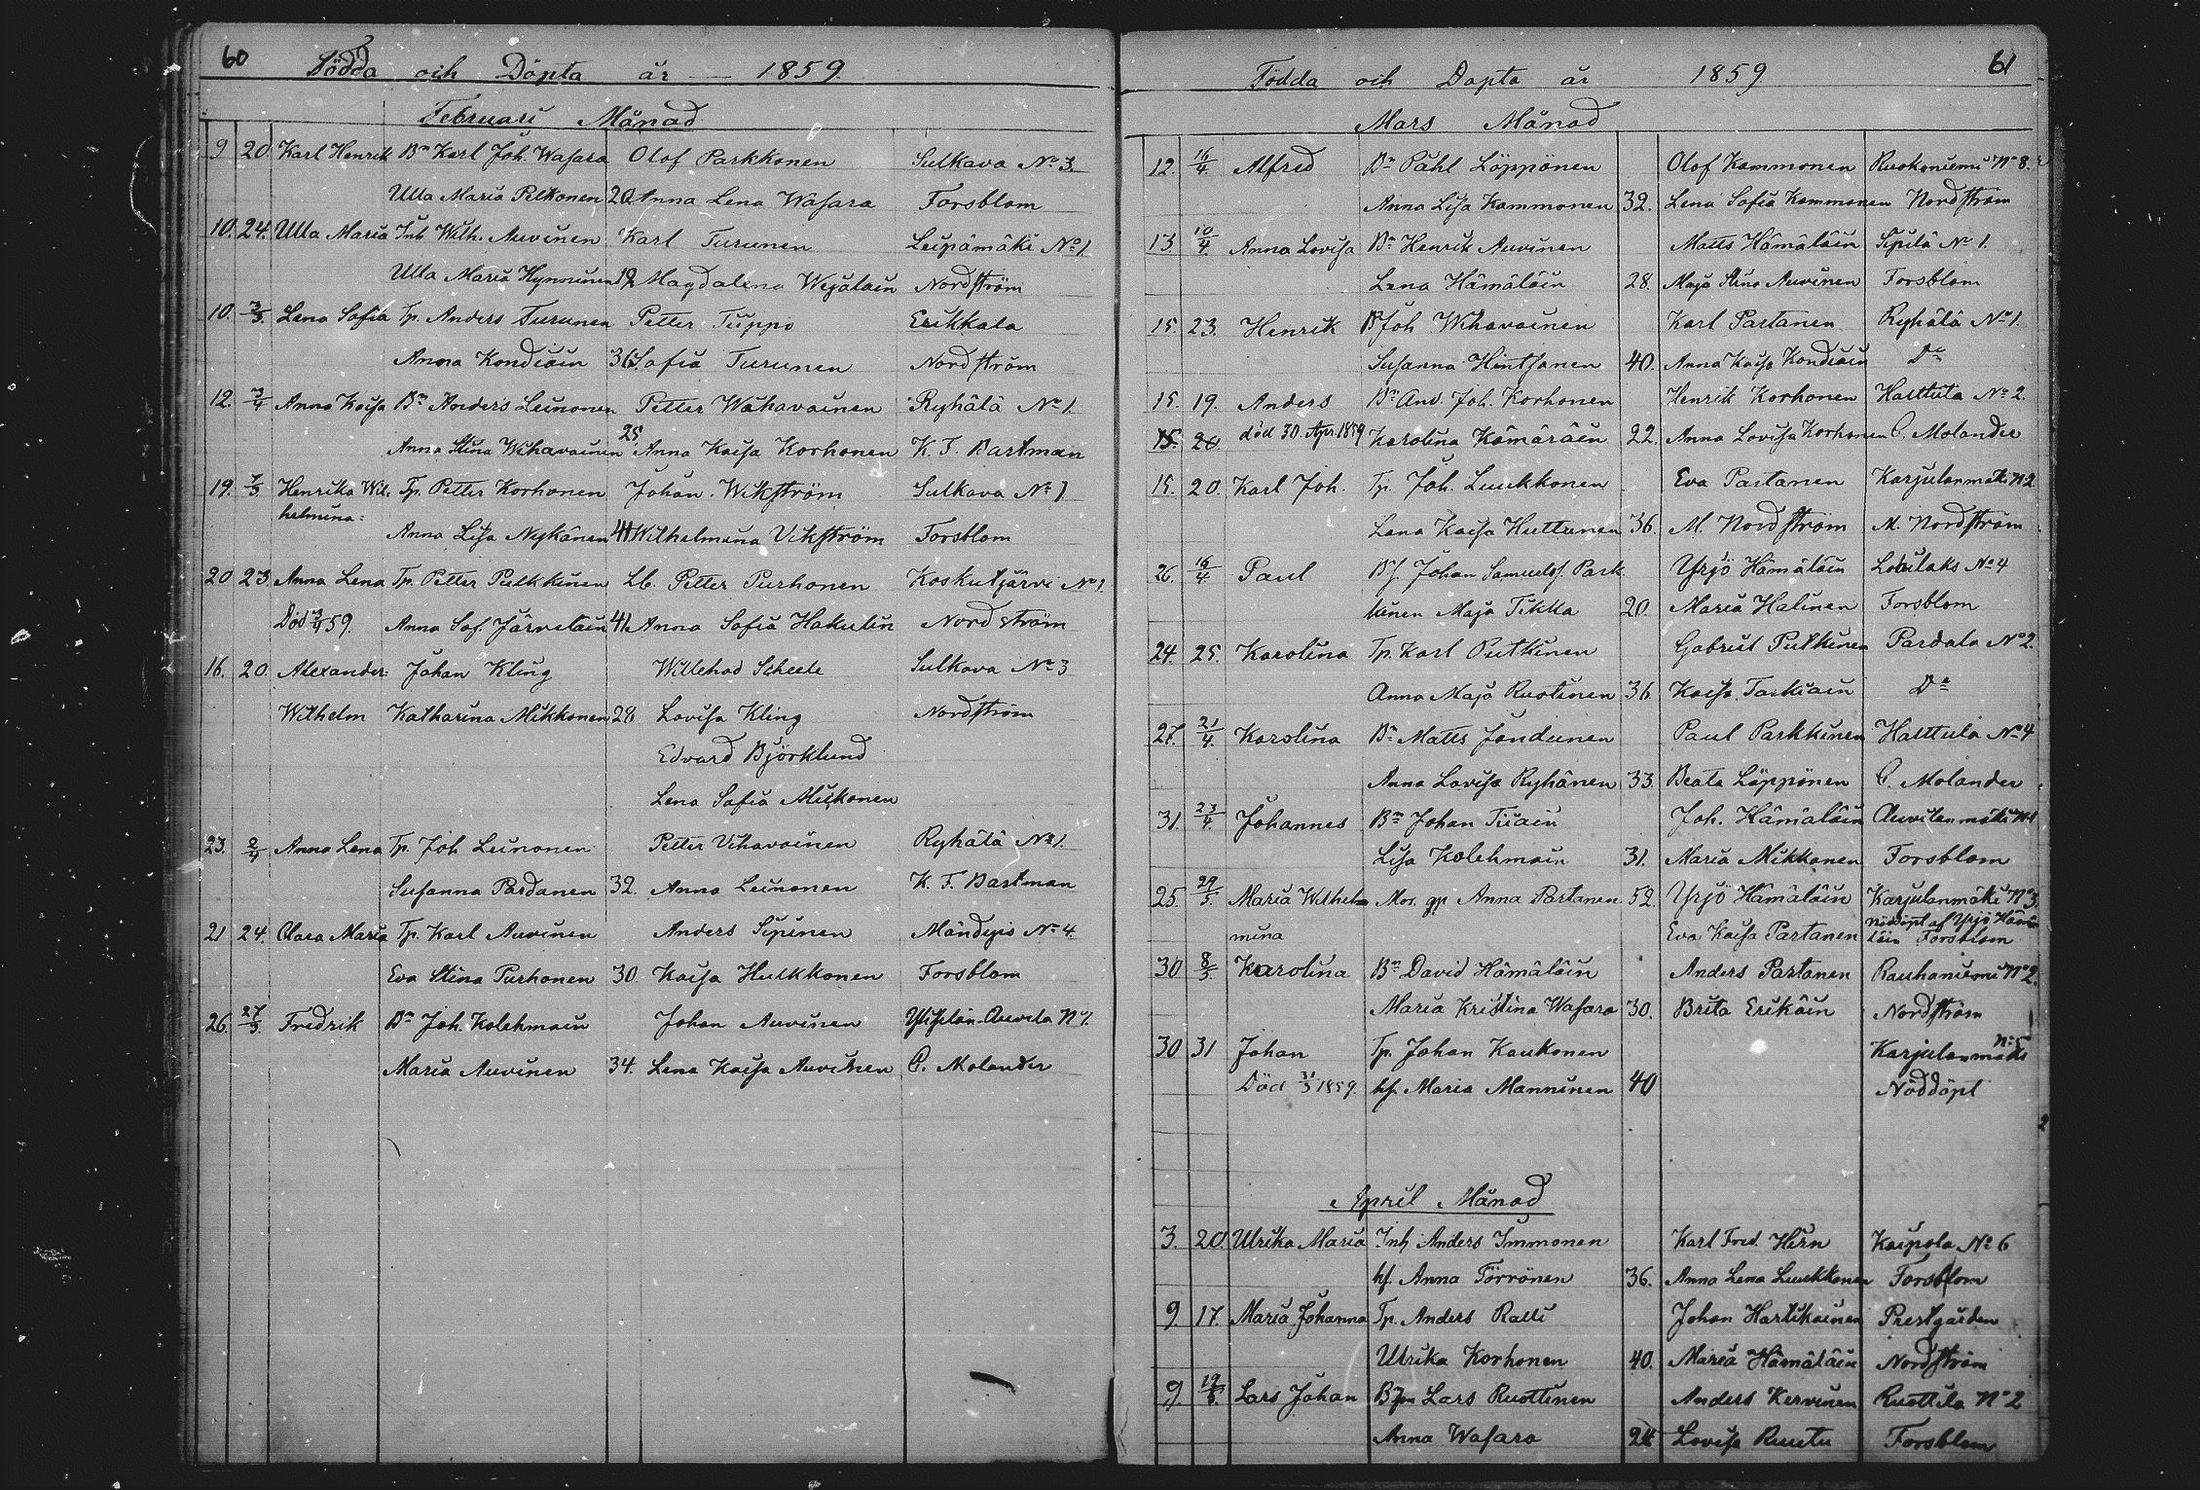 60
Födda och Döpta år — 1859.
Februari Månad
9 20. Karl Henrik Bn Karl Joh. Wasara Olof Parkkonen Sulkava No 3.
Ulla Maria Pelkonen 20. Anna Lena Wasara Forsblom
10. 24. Ulla Maria Inh. Wilh. Auvinen Karl Turunen Leipämäki No 1.
Ulla Maria Hynninen 19. Magdalena Nordström
10. 3/3. Lena Sofia Tp. Anders Turunen Petter Tiippo Erikkala
Anna Kondiain 36. Sofia Turunen Nordström
12. 3/4 Anna Kaisa Bn Anders Leinonen Petter Wihavainen Ryhälä No 1.
Anna Stina Wihavainen 25. Anna Kaisa Korhonen K. F. Bastman
19. 7/3 Henrika Wil- Tp. Petter Korhonen Johan Wikström Sulkava No 7
helmina: Anna Lisa Nykänen 41 Wilhelmina Vikström Forsblom
20 23. Anna Lena Tp. Petter Pulkkinen Lb. Petter Purhonen Koskutjärvi No 1.
Död 59. Anna Sof. Järveläin 41. Anna Sofia Hakulin Nordström
16. 20. Alexander Johan Kling Willehad Scheele Sulkava No 3
Wilhelm Katharina Mikkonen 28 Lovisa Kling Nordström
Edvard Björklund
Lena Sofia Mikkonen
23. 2/4 Anna Lena Tp. Joh Leinonen Petter Vihavainen Ryhälä No 1.
Susanna Pardanen 32. Anna Leinonen K. F. Bastman
21 24. Clara Maria Tp. Karl Auvinen Anders Sipinen Mändyis No 4.
Eva Stina Purhonen 30. Kaisa Hulkkonen Forsblom
26. 27/3. Fredrik Bn Joh. Kolehmain Johan Auvinen Auvila No 1.
Maria Auvinen 34. Lena Kaisa Auvinen C. Molander
61
Födda och Döpta år 1859.
Mars Månad
12. 16/4. Alfred Bn Påhl Löppönen Olof Kammonen Ruokoniemi No 8.
Anna Lisa Kammonen 32. Lena Sofia Kammonen Nordström
13 10/4. Anna Lovisa Bn Henrik Auvinen Matts Hämäläin Sipilä No 1.
Lena Hämäläin 28. Maja Stina Auvinen Forsblom
15. 23. Henrik B Joh Wihavainen Karl Partanen Ryhälä No 1.
Susanna Hintsanen 40. Anna Kaisa Kondiain Do
15. 19. Anders Bn And. Joh. Korhonen Henrik Korhonen Halttula No 2.
15. 20. död 30. Apr. 1859 Karolina Kämäräin 22. Anna Lovisa Korhonen C. Molander
15. 20. Karl Joh. Tp. Joh. Luukkonen Eva Partanen Karjulanmäki No 2
Lena Kaisa Huttunen 36. M. Nordström M. Nordström
26. 16/4 Paul Bs. Johan Samuelss. Park- Yrjö Hämäläin Lohilaks No 4
kinen Maja Tikka 20. Maria Halinen Forsblom
24. 25. Karolina Tp. Karl Putkinen Gabriel Putkinen Pardala No 2.
Anna Maja Ruotinen 36 Kaisa Taskiain Do
27. 21/4. Karolina Bn Matts Jandunen Paul Parkkinen Halttula No 4
Anna Lovisa Ryhänen 33. Beata Löppönen C. Molander
31. 23/4. Johannes Bn Johan Tiiain Joh. Hämäläin Auvilanmäki No 1
Lisa Kolehmain 31. Maria Mikkonen Forsblom
25. 29/5. Maria Wilhel- Mos. qp Anna Partanen 52. Yrjö Hämäläin Karjulanmäki No 3.
mina Eva Kaisa Partanen nöddöpt af Yrjö Hämä-
läin Forsblom
30 8/5 Karolina Bn David Hämäläin Anders Partanen Rauhaniemi No 2.
Maria Kristina Wasara 30. Brita Erikäin Nordström
30 31 Johan Tp. Johan Kaukonen Karjulanmäki No 5
Död 31/3 1859. hf. Maria Manninen 40 Nöddöpt
April Månad
3. 20. Ulrika Maria Inh Anders Immonen Karl Fred. Hirn Kaipola No 6
hf. Anna Törrönen 36. Anna Lena Luukkonen Forsblom
9. 17. Maria Johanna Tp. Anders Ratti Johan Hartikainen Prestgården
Ulrika Korhonen 40. Maria Hämäläin Nordström
9. 19/6. Lars Johan Bn Lars Ruottinen Anders Kervinen Ruottila No 2
Anna Wasara 24 Lovisa Ruutu Forsblom